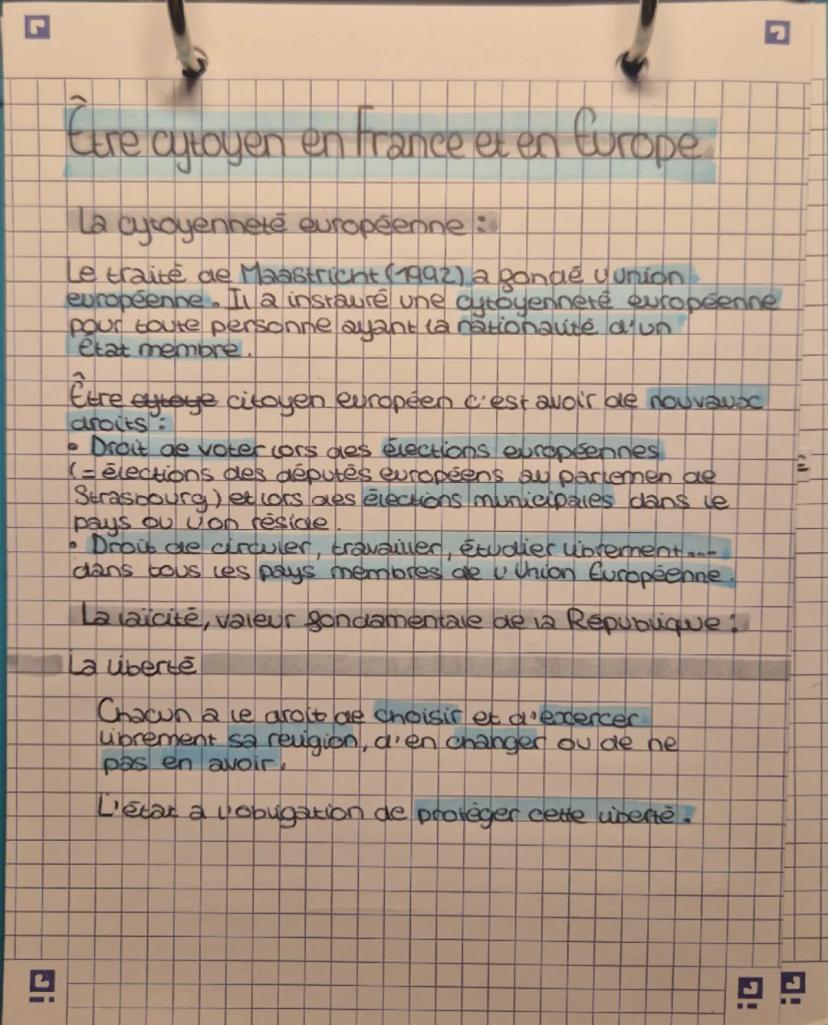 Être cytoyen en France et en Europe
La cytoyenneté européenne :
Le traité de Maastricht (1992) a fondé l'union
européenne. Il a instauré une cytoyenneté européenne
pour toute personne ayant la nationalité d'un
état membre.
Être cytoye citoyen européen c'est avoir de nouvaux
droits :
• Droit de voter lors des élections européennes
(= élections des députés européens au parlemen de
Strasbourg) et lors des élections municipales dans le
pays ou l'on réside.
• Droit de circuler, travailler, étudier librement...
dans tous les pays membres de l'Union Européenne.
La laïcité, valeur fondamentale de la République :
La liberté
Chacun a le droit de choisir et d'exercer
librement sa religion, d'en changer ou de ne
pas en avoir.
L'état a l'obligation de protéger cette liberté.